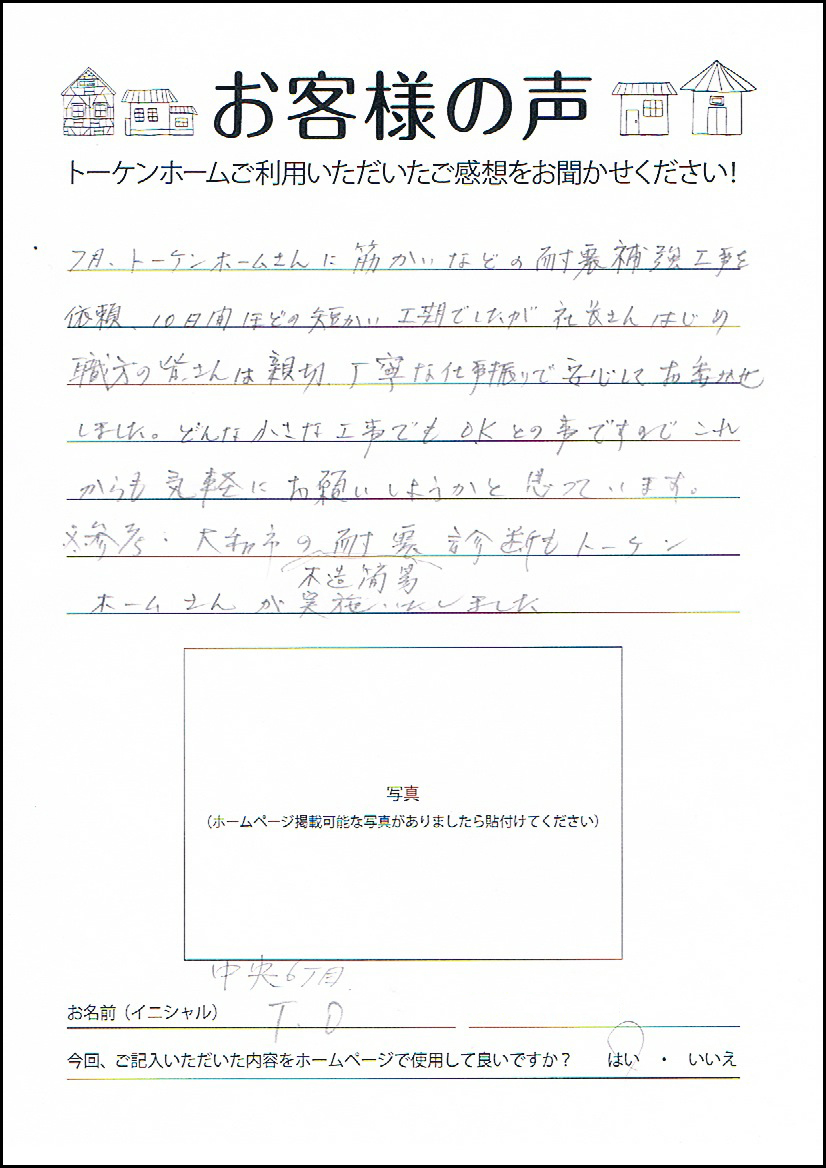 お客様の声
トーケンホームご利用いただいたご感想をお聞かせください!
7月、トーケンホームさんに筋かいなどの耐震補強工事を
依頼、10日間ほどの短かい工期でしたが社長さんはじめ
職方の皆さんは親切、丁寧な仕事振りで安心してお委かせ
しました。どんな小さな工事でもOKとの事ですのでこれ
からも気軽にお願いしようかと思っています。
参考・大和市の耐震診断もトーケン
木造簡易
ホームさんが実施いたしました
写真
(ホームページ掲載可能な写真がありましたら貼付けてください)
中央6丁目
お名前(イニシャル) T.O
今回、ご記入いただいた内容をホームページで使用して良いですか? はい ・ いいえ